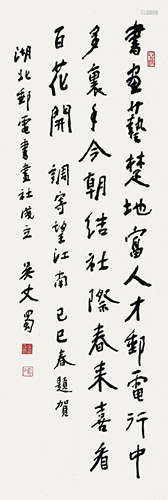 書畫藝楚地富人才郵電行中
多裏手今朝結社際春來喜看
百花開 調寄望江南 己巳春題賀
湖北郵電書畫社成立 吳丈蜀